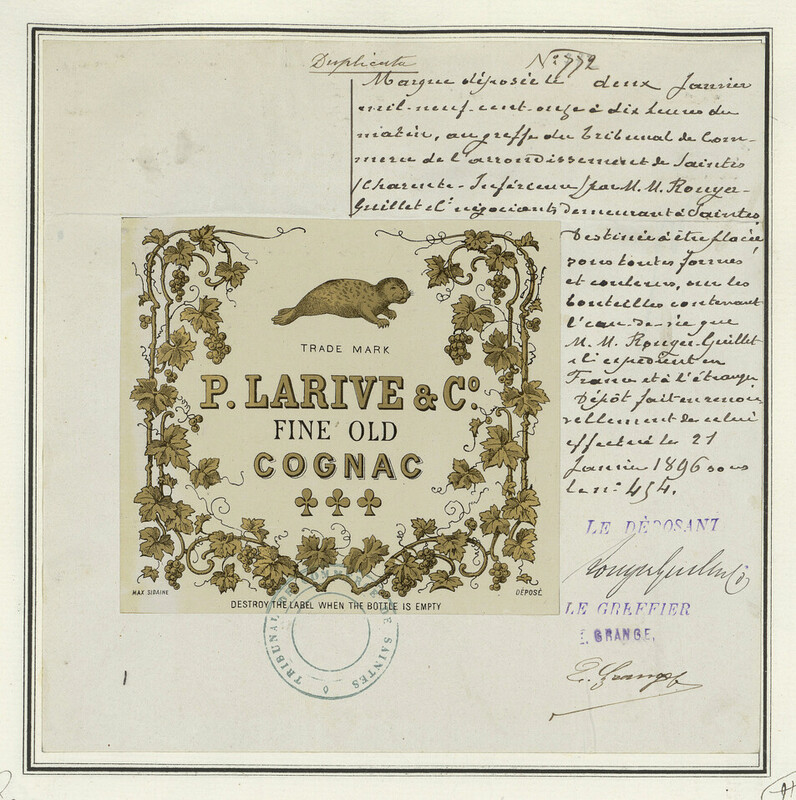 Duplicata
N° 992
Marque déposée le deux Janvier
mil-neuf-cent-onze à dix heures du
matin, au greffe du Tribunal de Com-
merce de l'arrondissement de Saintes
(Charente-Inférieure) par M.M. Rouyer-
Guillet et Cie négociants demeurant à Saintes.
Destinée à être placée,
sous toutes formes
et couleurs, sur les
bouteilles contenant
l'eau-de-vie que
M. M. Rouyer-Guillet
et Cie expédient en
France et à l'étranger
Dépôt fait en renou-
vellement de celui
effectué le 21
Janvier 1896 sous
le n° 454.
TRADE MARK
P. LARIVE & Co.
FINE OLD
COGNAC
MAX SIDAINE
DÉPOSÉ
DESTROY THE LABEL WHEN THE BOTTLE IS EMPTY
TRIBUNAL DE COMMERCE DE SAINTES
LE DÉPOSANT
Rouyer Guillet & Co
LE GREFFIER
E. GRANGE.
E. Grange